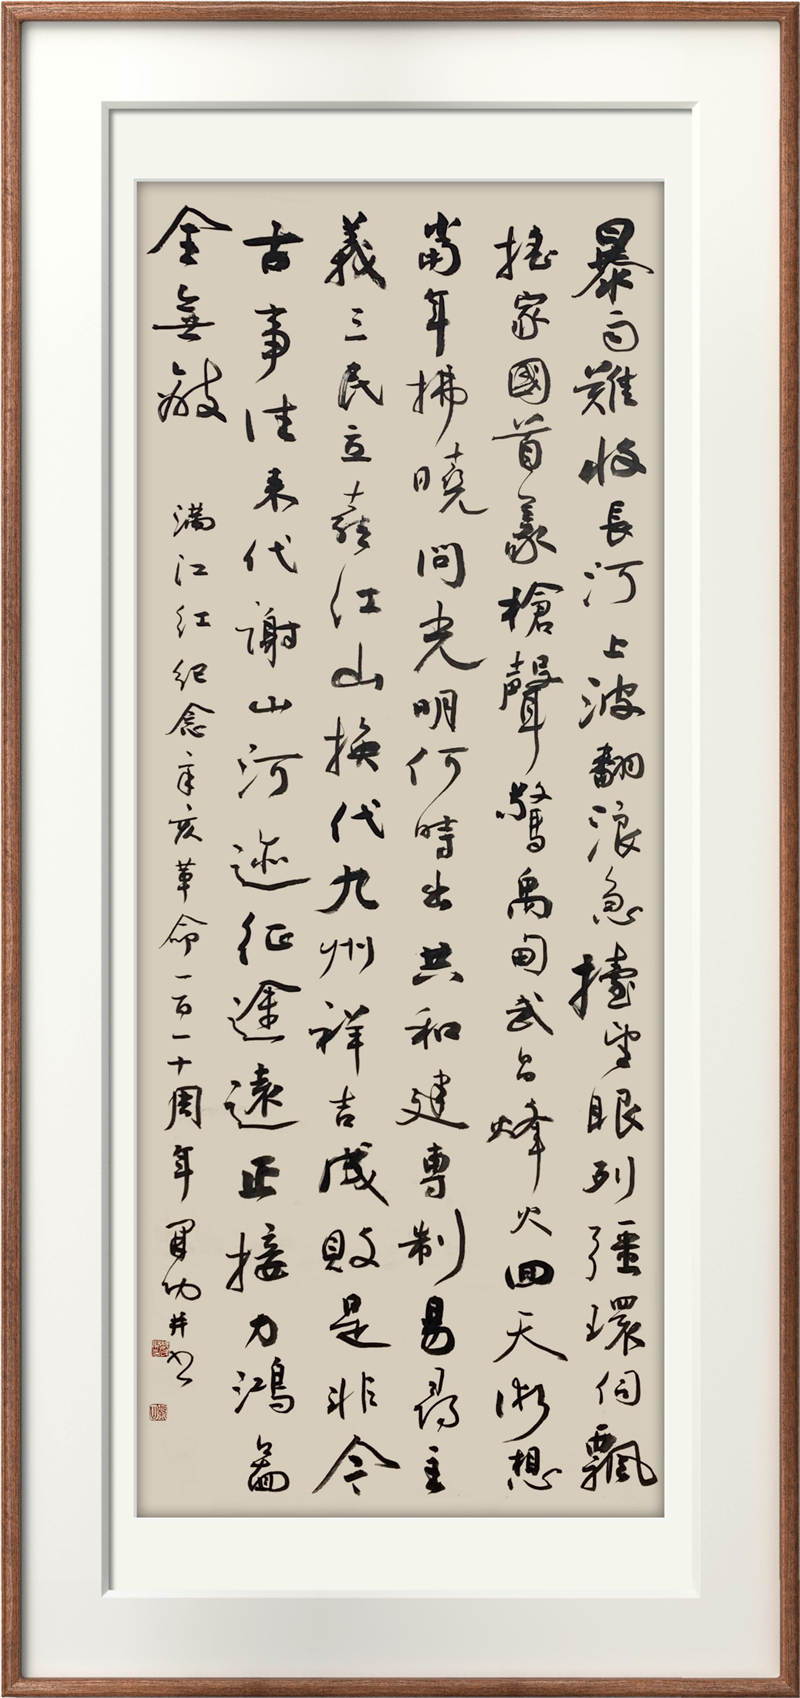 暴雨難收長河上波翻浪急擡望眼列彊環伺飄
摇家國首義槍聲驚禹甸武昌烽火回天術想
當年拂曉問光明何時出共和建專制易尋主
義三民立喜江山換代九州祥吉成敗是非今
古事往來代謝山河迹征途遠正接力鴻篇
全無敵
满江红纪念辛亥革命一百一十周年